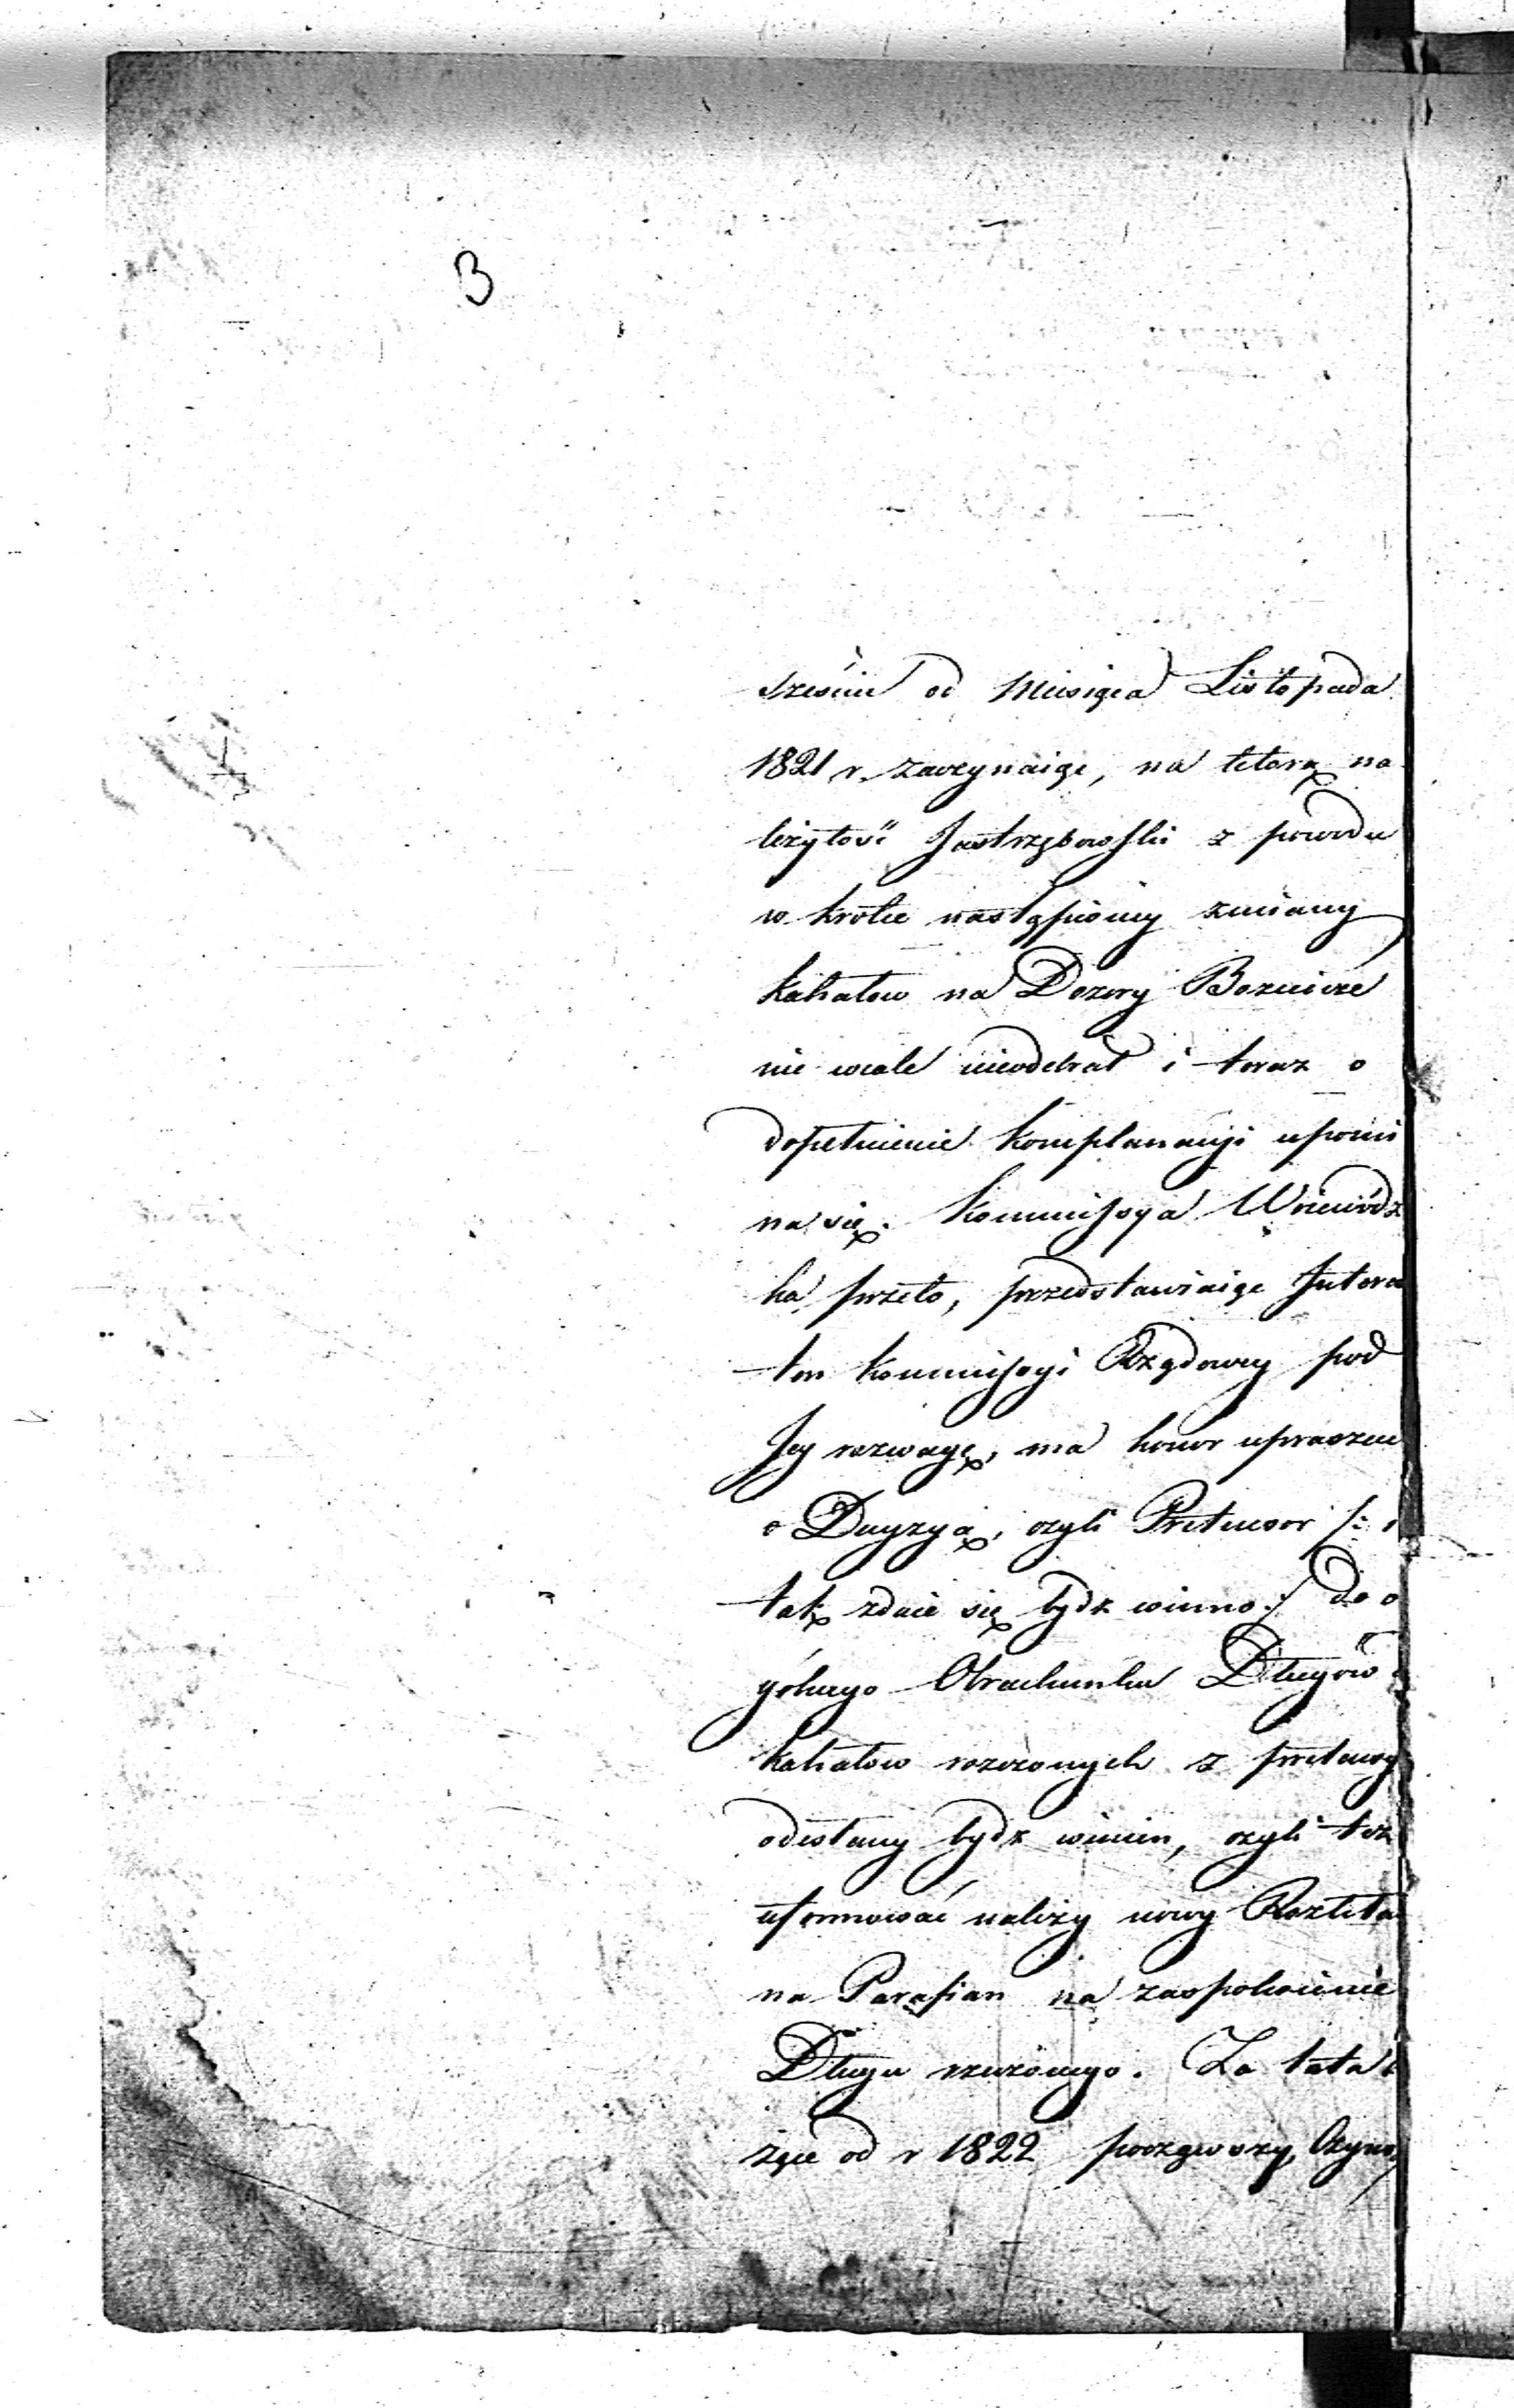 3
sześciu od Miesiąca Listopada
1821 r. zaczynaiąc, na którą na
leżytość Jastrzębowski z powodu
w krótce nastąpioney zmiany
Kahałow na Dozory Boznicze
nic wcale nieodebrał i teraz o
dopełnienie Komplanacyi upomi
na się. Kommissya Woiewódz
ka przeto, przedstawiaiąc Jntere
ten Kommissyi Rządowey pod
Jey rozwagę, ma honor upraszać
o Decyzyą, czyli Pretensor /: i
tak zdaie się bydz winno :/ do o
gólnego Obrachunku Długów
Kahałow rozwiązanych z pretensy
odesłany bydz winien, czyli też
uformować należy nowy Rozkła
na Parafian na zaspokoienie
Długu rzeczonego. Za lata b
żące od r 1822 począwszy, Czyns